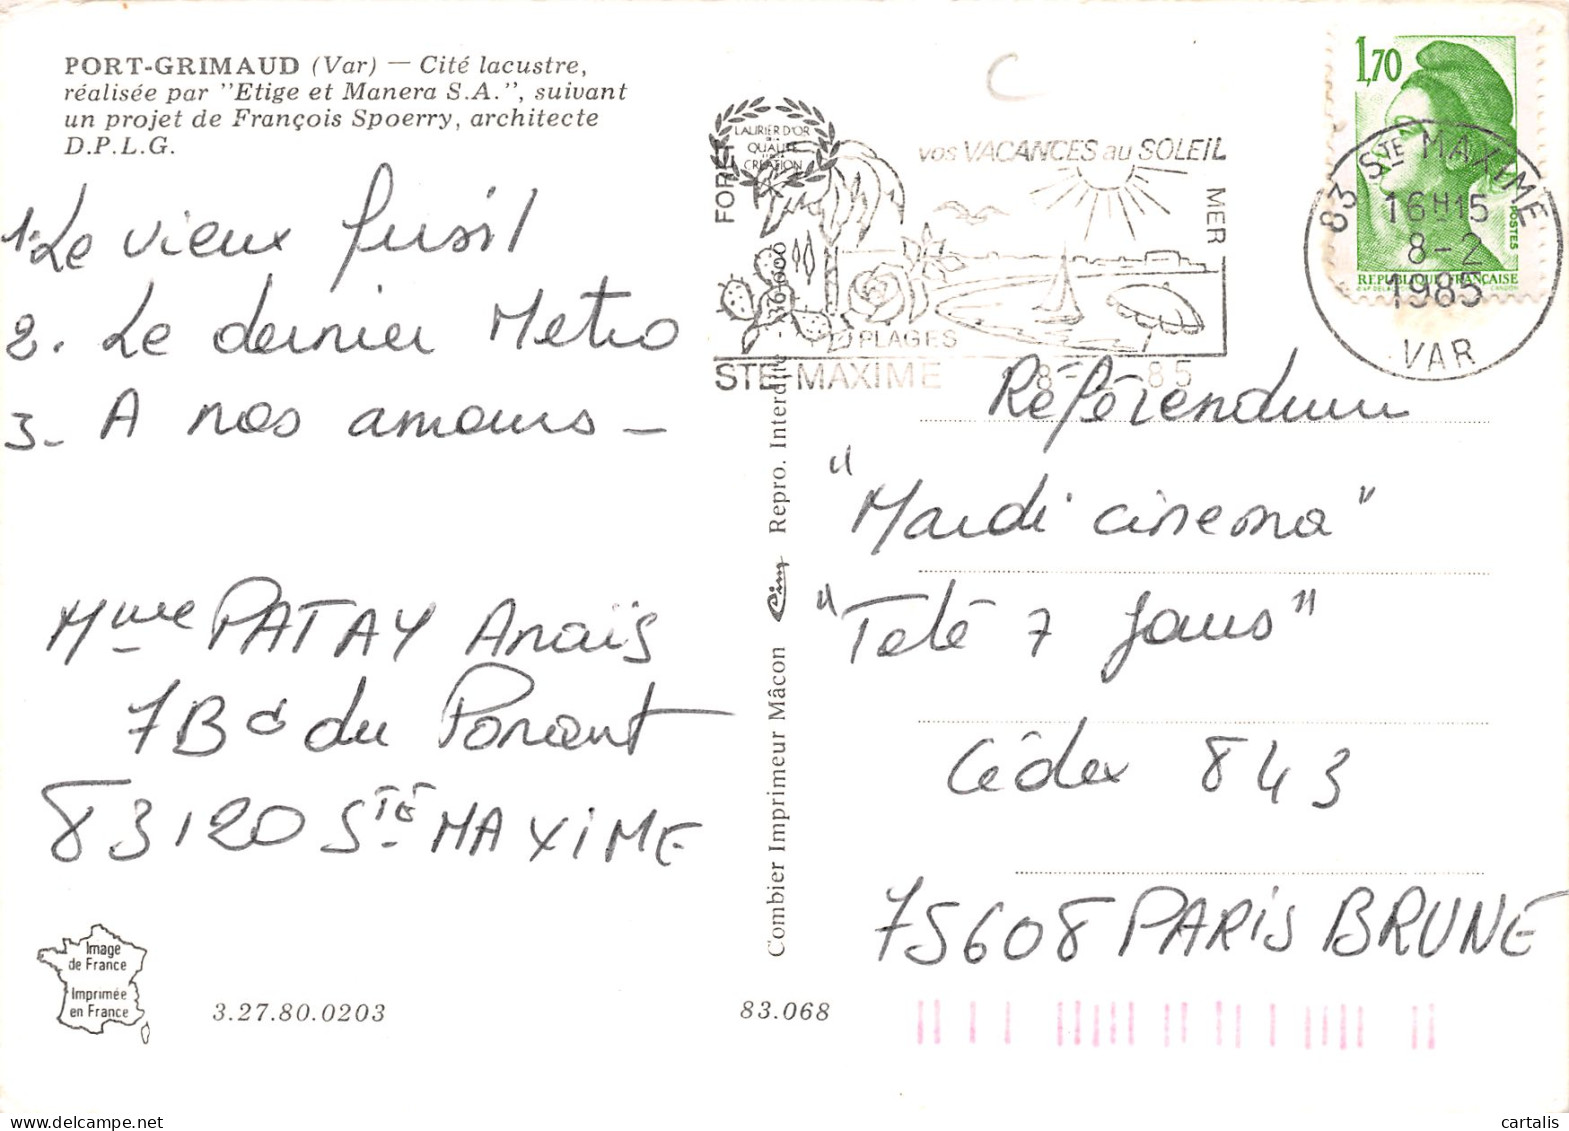 PORT-GRIMAUD (Var) — Cité lacustre,
réalisée par "Etige et Manera S.A.", suivant
un projet de François Spoerry, architecte
D.P.L.G.
1. Le vieux fusil
2. Le dernier Metro
3- A nos amours -
Mme PATAY Anaïs
7 Bd du Ponant
83120 STE MAXIME
Image
de France
Imprimée
en France
3.27.80.0203
83.068
Combier Imprimeur Mâcon Cim Repro. Interdite - 36.606
LAURIER D'OR
QUALITÉ
CRÉATION
FORET
vos VACANCES au SOLEIL
MER
PLAGES
STE MAXIME 8-2 85
1,70
POSTES
REPUBLIQUE FRANÇAISE
83 STE MAXIME
16H15
8-2
1985
VAR
Référendum
"Mardi cinema"
"Télé 7 Jours"
Cédex 843
75608 PARIS BRUNE
cartalis